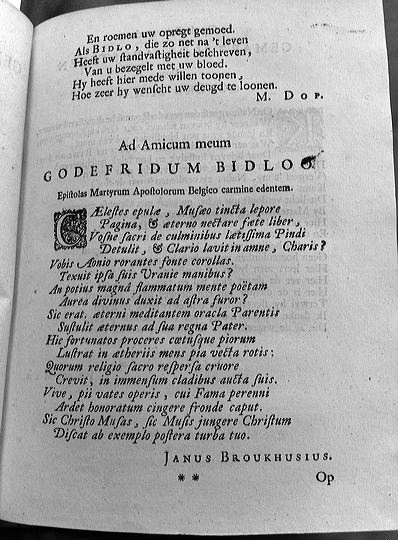 En roemen uw opregt gemoed.
Als BIDLO, die zo net na 't leven
Heeft uw standvastigheit beschreven,
Van u bezegelt met uw bloed.
Hy heeft hier mede willen toonen,
Hoe zeer hy wenscht uw deugd te loonen.
M. DOP.
Ad Amicum meum
GODEFRIDUM BIDLOO
Epistolas Martyrum Apostolorum Belgico carmine edentem.
CÆlestes epulæ, Musæo tincta lepore
Pagina, & æterno nectare fœte liber,
Vosne sacri de culminibus lætissima Pindi
Detulit, & Clario lavit in amne, Charis?
Vobis Aonio rorantes fonte corollas.
Texuit ipsa suis Uranie manibus?
An potius magnâ flammatum mente poëtam
Aurea divinus duxit ad astra furor?
Sic erat. æterni meditantem oracla Parentis
Sustulit æternus ad sua regna Pater.
Hic fortunatos proceres cœtusque piorum
Lustrat in ætheriis mens pia vecta rotis:
Quorum religio sacro respersa cruore
Crevit, in immensum cladibus aucta suis.
Vive, pii vates operis, cui Fama perenni
Ardet honoratum cingere fronde caput.
Sic Christo Musas, sic Musis jungere Christum
Discat ab exemplo postera turba tuo.
JANUS BROUKHUSIUS.
* *
Op